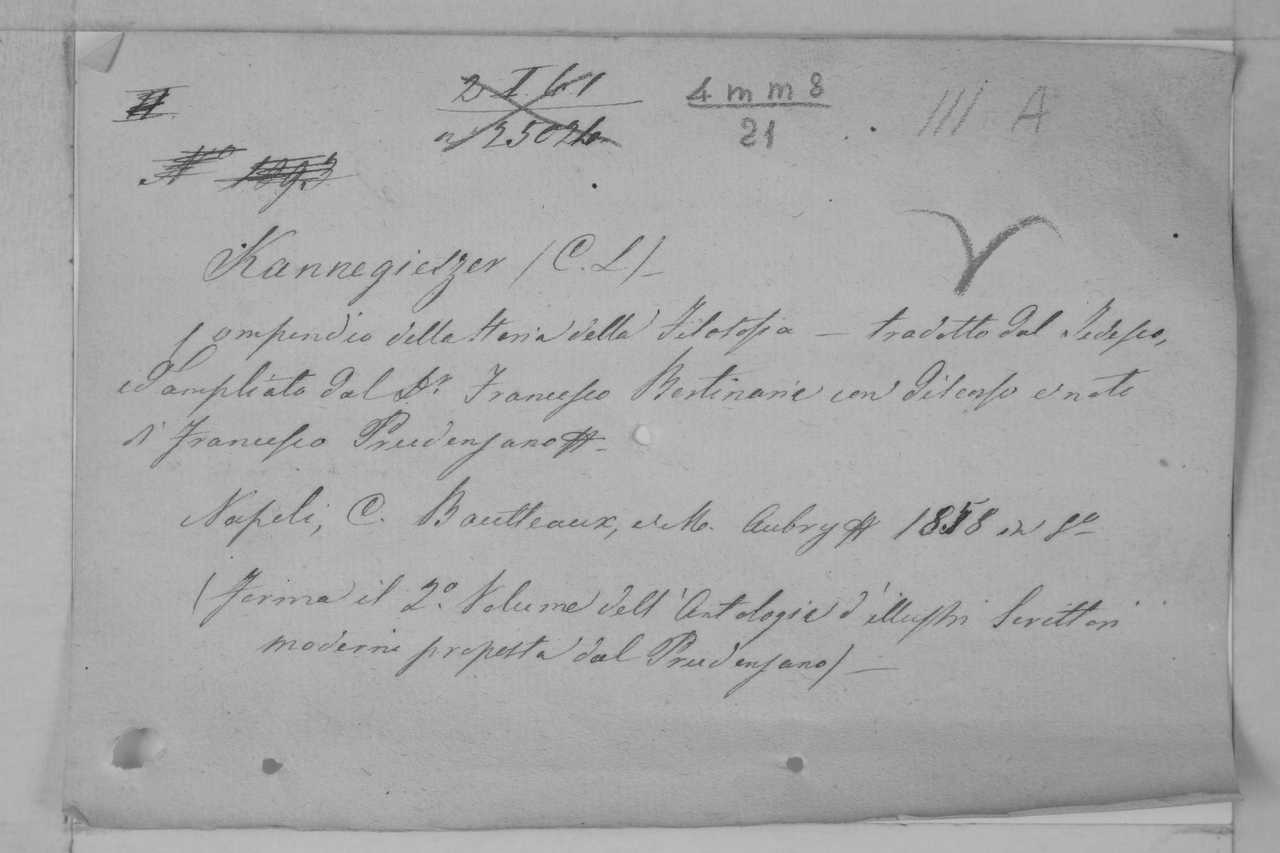 2 I 61
n° 25026
4 m m 8
21
III A
N° 1093
Kannegieszer (C. L)_
Compendio della Storia della Filosofia — tradotto dal Tedesco,
ed ampliato dal Dr. Francesco Bertinarie con discorso e note
di Francesco Prudenzano
Napoli, C. Boutteaux, e M. Aubry 1858 in 8°
(forma il 2°. Volume dell' Antologie d'illustri Scrittori
moderni proposta dal Prudenzano) —